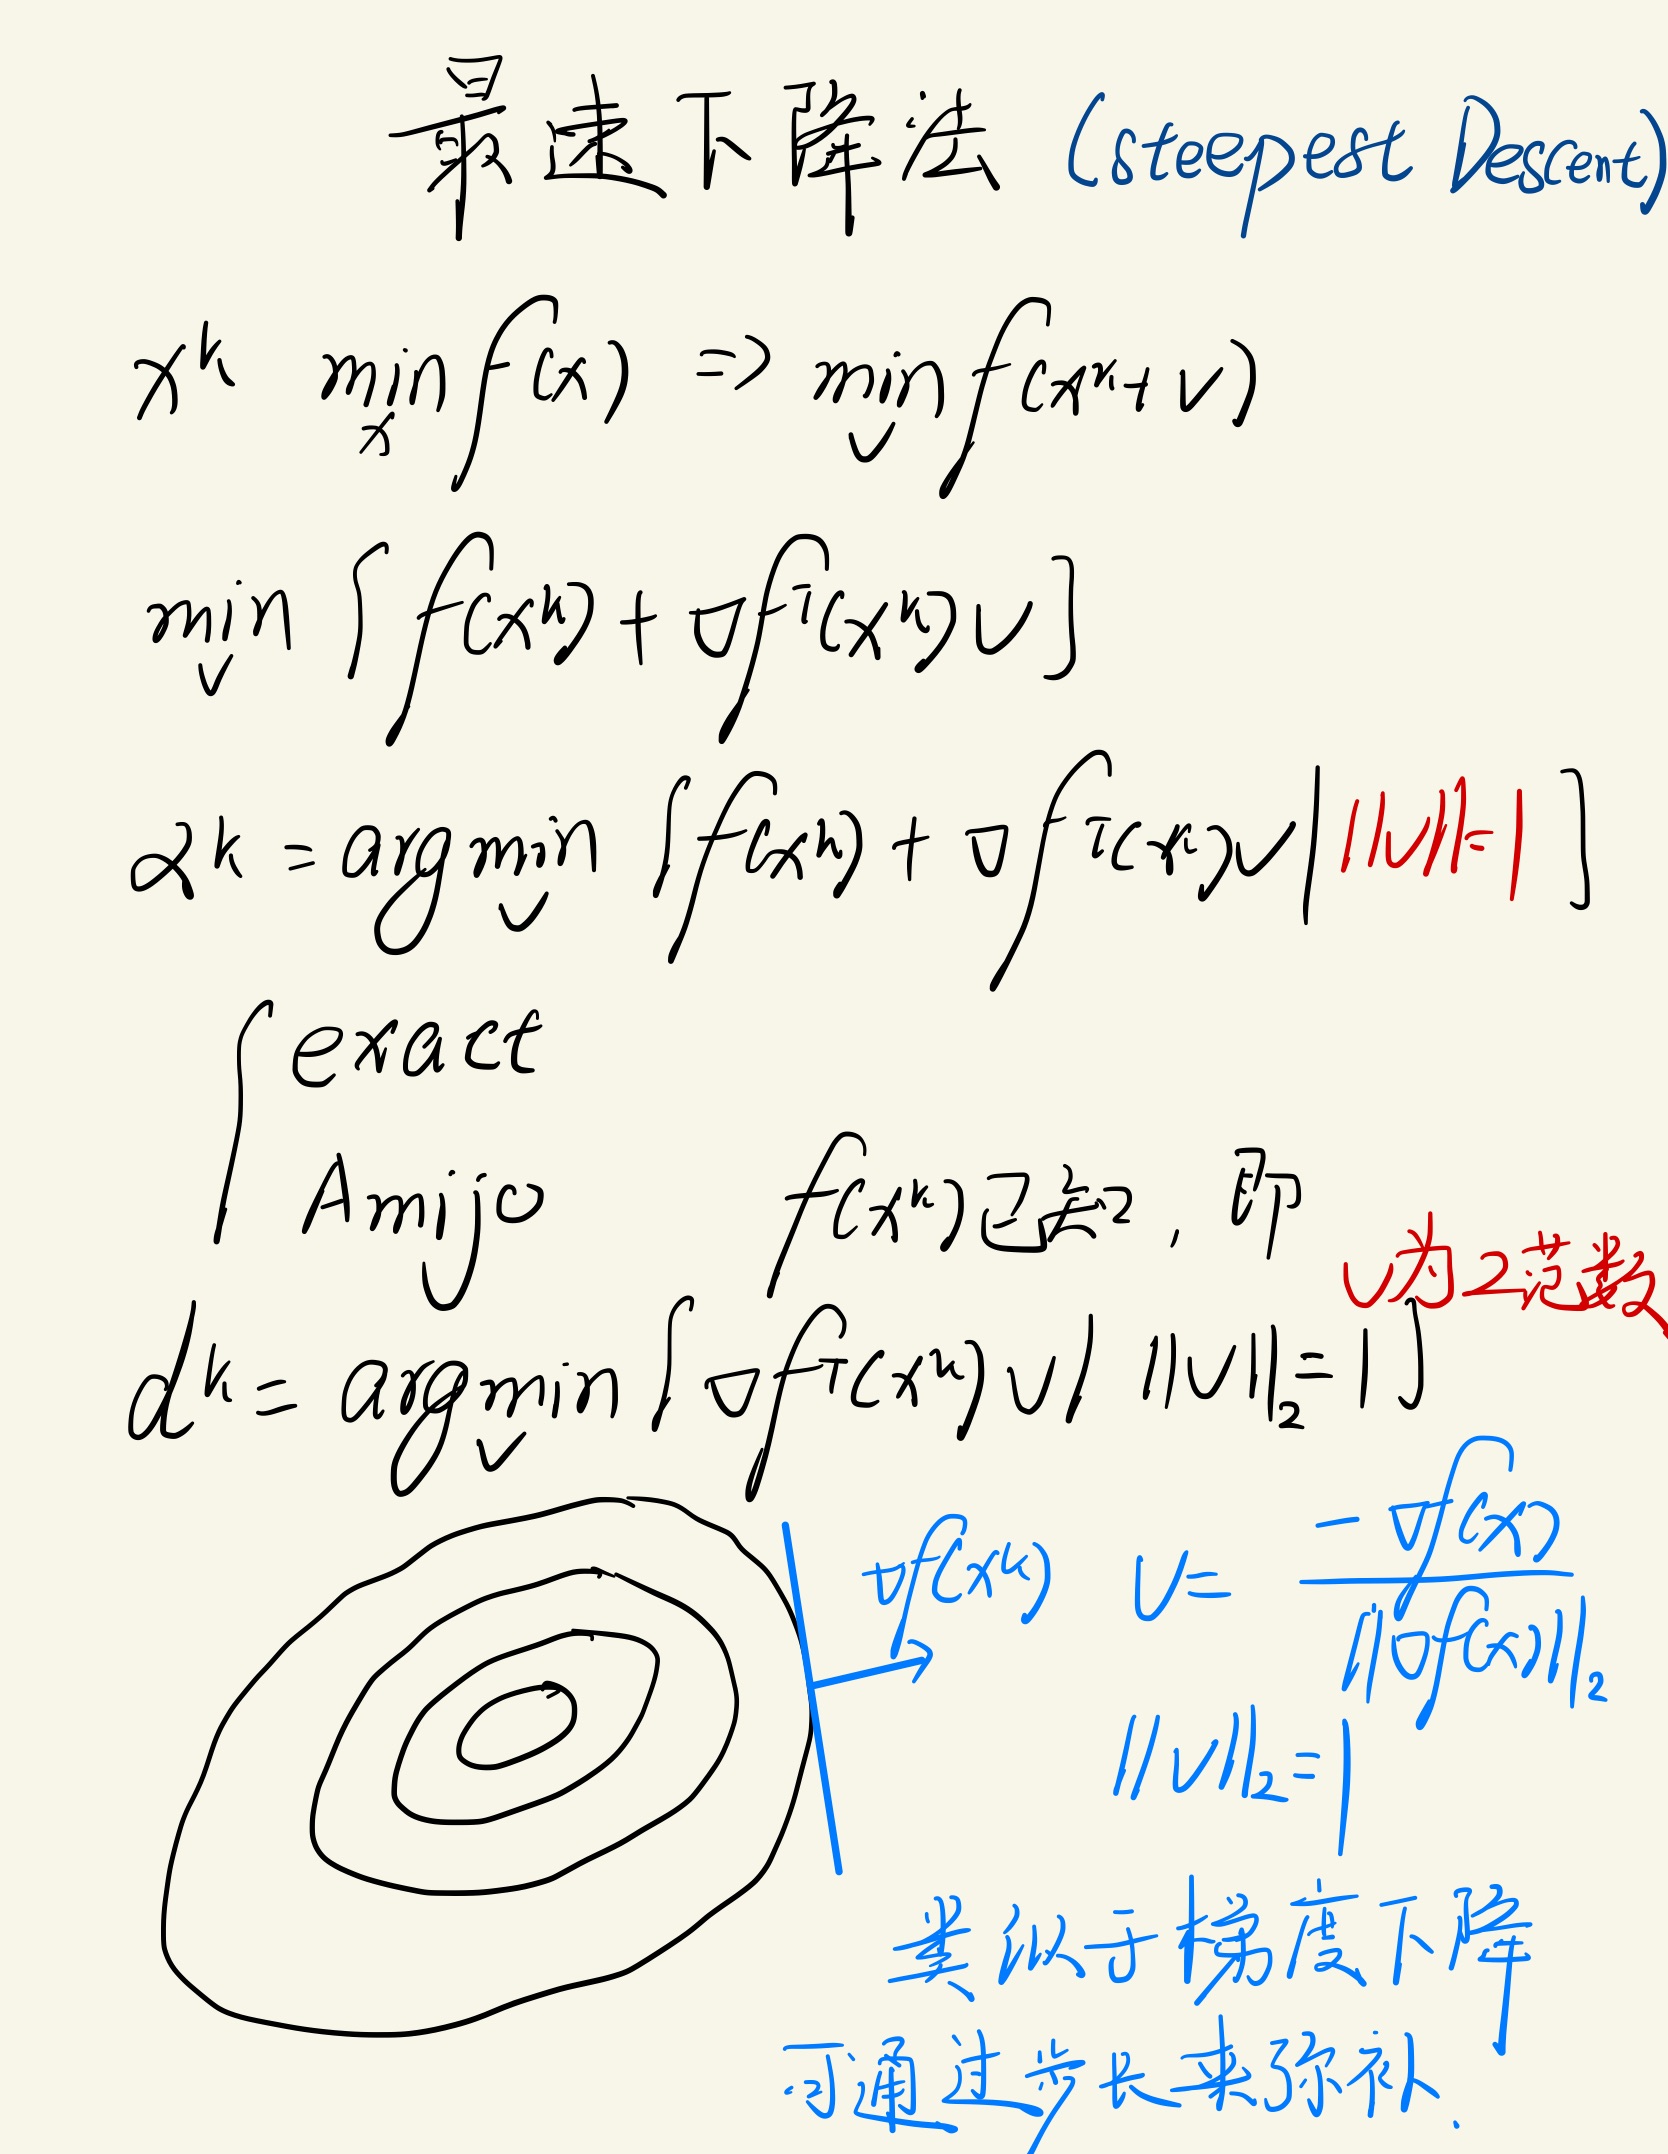 最速下降法 (steepest Descent)
x^k min_x f(x) => min_v f(x^k + v)
min_v [f(x^k) + ∇f^T(x^k) v]
α^k = arg min_v [f(x^k) + ∇f^T(x^k) v | ||v|| = 1]
{ exact
Amijo
f(x^k) 已知, 即
v为2范数
d^k = arg min_v [∇f^T(x^k) v | ||v||_2 = 1]
∇f(x^k) v = -∇f(x) / ||∇f(x)||_2
||v||_2 = 1
类似于梯度下降
可通过步长来弥补.